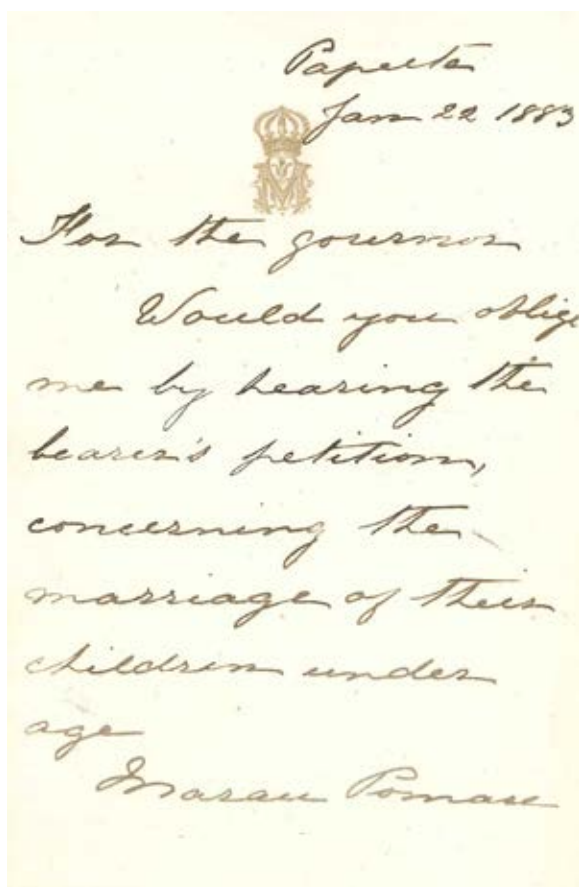 Papeete
Jan 22 1883
M
For the governor
Would you oblige
me by hearing the
bearer's petition,
concerning the
marriage of their
children under
age
Marau Pomare